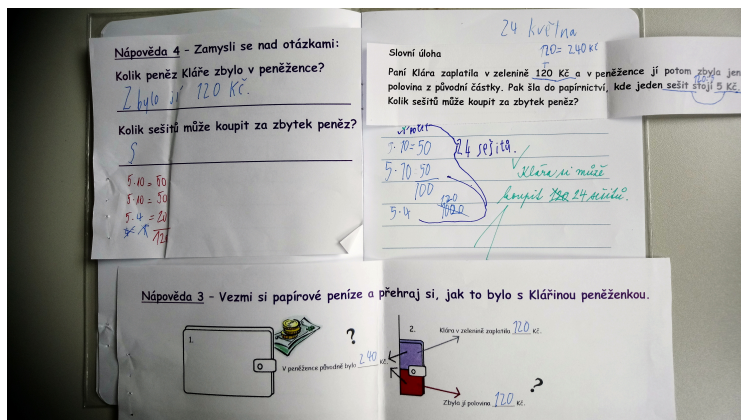 24 května
120 = 240 Kč
Nápověda 4 - Zamysli se nad otázkami:
Kolik peněz Kláře zbylo v peněžence?
Zbylo jí 120 Kč.
Kolik sešitů může koupit za zbytek peněz?
5·10 = 50
5·10 = 50
5·4 = 20
120
Slovní úloha
Paní Klára zaplatila v zelenině 120 Kč a v peněžence jí potom zbyla jen
polovina z původní částky. Pak šla do papírnictví, kde jeden sešit stojí 5 Kč.
Kolik sešitů může koupit za zbytek peněz?
5·10=50 24 sešitů.
5·10 50
100
5·4
Klára si může
koupit 24 sešitů.
Nápověda 3 - Vezmi si papírové peníze a přehraj si, jak to bylo s Klářinou peněženkou.
1.
?
V peněžence původně bylo 240 Kč.
2.
Klára v zelenině zaplatila 120 Kč.
Zbyla jí polovina 120 Kč.
?